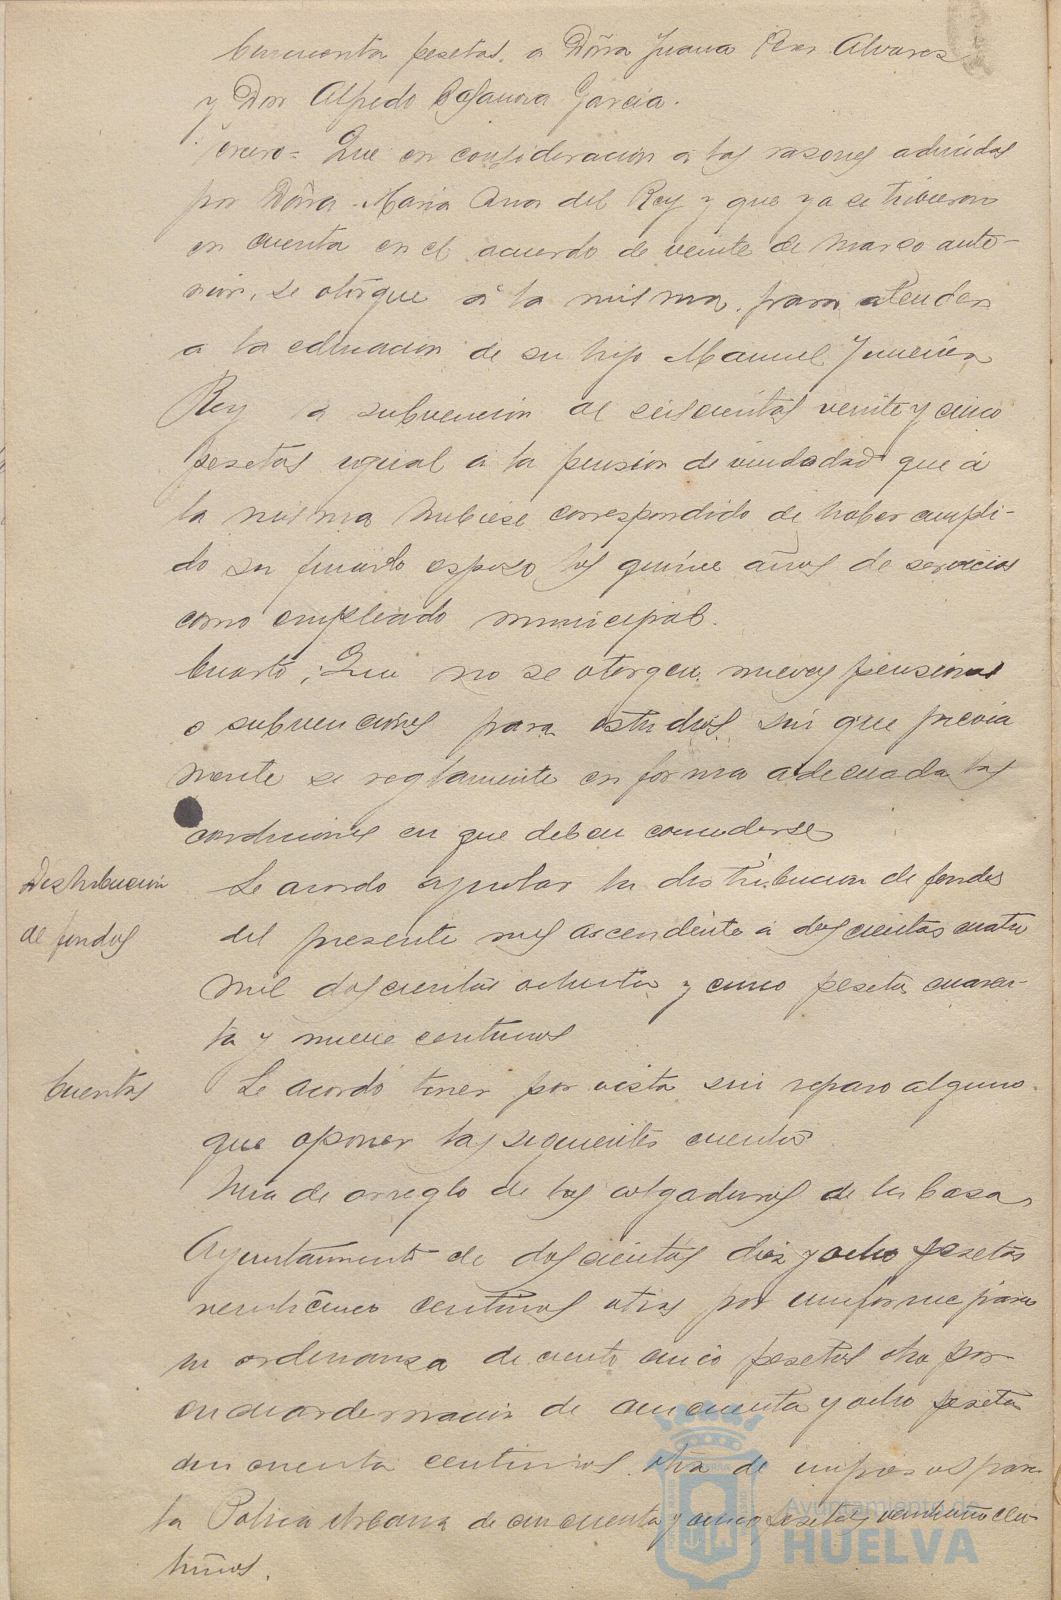 Cincuenta pesetas a Doña Juana Alvarez
y Don Alfredo Casanova Garcia.
Que en consideracion a las razones aducidas
por Doña Maria Ana del Rey y que ya se tuvieron
en cuenta en el acuerdo de veinte de Marzo ante-
rior, se otorgue á la misma para atender
a la educacion de su hijo Manuel
Rey subvencion de seiscientas veinte y cinco
pesetas igual a la pension de viudedad que á
la misma hubiese correspondido de haber cumpli-
do su finado esposo los quince años de servicios
como empleado municipal.
Cuarto; Que no se otorguen nuevas pensiones
o subvenciones para estudios sin que previa
mente se reglamente en forma adecuada las
condiciones en que deban concederse
Distribucion
de fondos
Se acordo aprobar la distribucion de fondos
del presente mes ascendente a doscientas cuatro
mil doscientas ochenta y cinco pesetas cuaren-
ta y nueve centimos
Cuentas
Se acordó tener por vista sin reparo alguno
que oponer las siguientes cuentas
Una de arreglo de las colgaduras de la Casa
Ayuntamiento de doscientas diez y ocho pesetas
veinticinco centimos otra por uniforme para
un ordenanza de ciento cinco pesetas otra por
encuadernacion de cincuenta y ocho pesetas
cincuenta centimos otra de impresos para
la Policia Urbana de cincuenta y cinco pesetas cen-
timos.
Ayuntamiento de
HUELVA